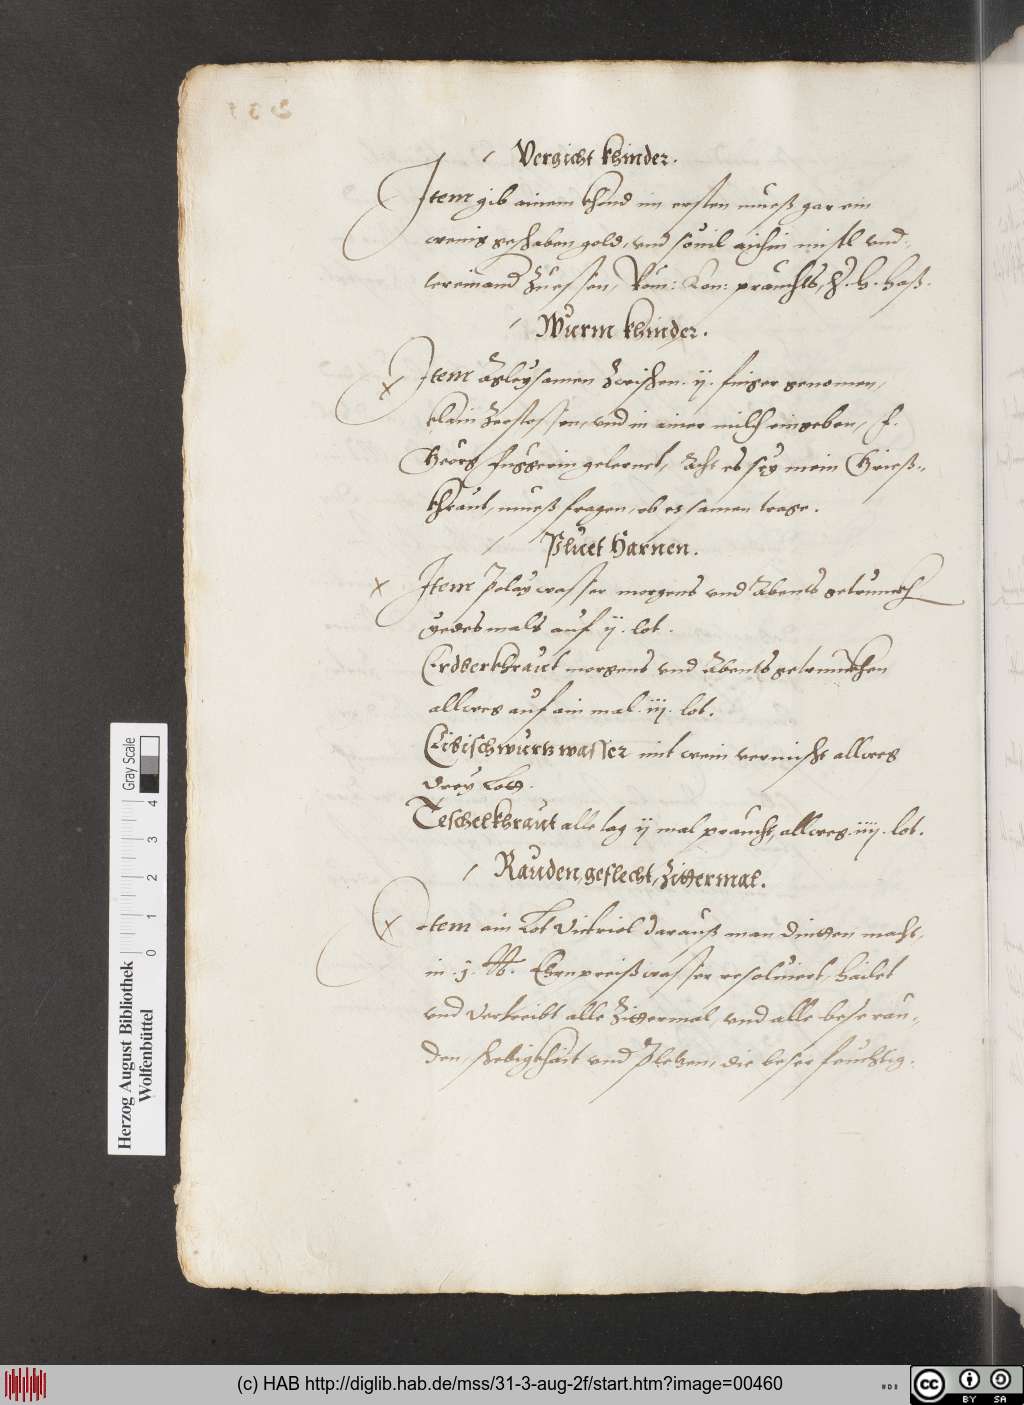 Vergicht khinder.
Item gib ainem khind im ersten mueß gar ein
wenig geschaben gold, vnd souil aichin mistl vnd-
tereinand zuessen, Röm: Kön: prauchts, H. H. Haß.
Wurm khinder.
Item Agleysamen zwischen .ij. finger genomen,
klain zerstossen, vnd in ainer milch eingeben, f.
Georg fuggerin gelernet, Acht es sey mein Grieß-
khraut, mueß fragen, ob es samen trage.
Pluet Harnen.
Item Poley wasser morgens vnd Abents getrunckh
yedesmals auf ij. lot.
Erdberkhraut morgens vnd Abents getrunckhen
allweg auf ain mal .iij. lot.
Eibischwurtzwasser mit wein vermischt allweg
drey Lott.
Teschelkhraut alle tag ij mal praucht, allweg .iiij. lot.
Rauden, geflecht, Zittermal.
Item ain Lot Victriol darauß man Dintten macht,
in .j. lb. Ehrnpreißwasser resoluiert, hailet
vnd vertreibt alle Zittermal, vnd alle bese rau-
den, schebigkhait vnd Pletzen, die beser feuchtig-
Herzog August Bibliothek
Wolfenbüttel
0 1 2 3 4
Gray Scale
(c) HAB http://diglib.hab.de/mss/31-3-aug-2f/start.htm?image=00460
cc BY SA